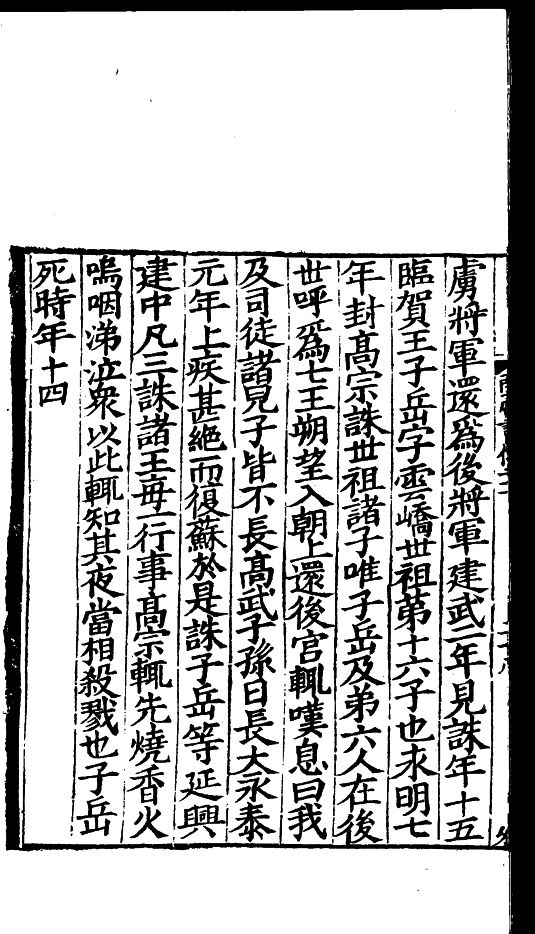 虜將軍還爲後將軍建武二年見誅年十五
臨賀王子岳字雲嶠世祖第十六子也永明七
年封髙宗誅世祖諸子唯子岳及弟六人在後
世呼爲七王朔望入朝上還後宫輒嘆息曰我
及司徒諸兒子皆不長髙武子孫日長大永泰
元年上疾甚絶而復蘇於是誅子岳等延興
建中凡三誅諸王每一行事髙宗輒先燒香火
嗚咽涕泣衆以此輒知其夜當相殺戮也子岳
死時年十四